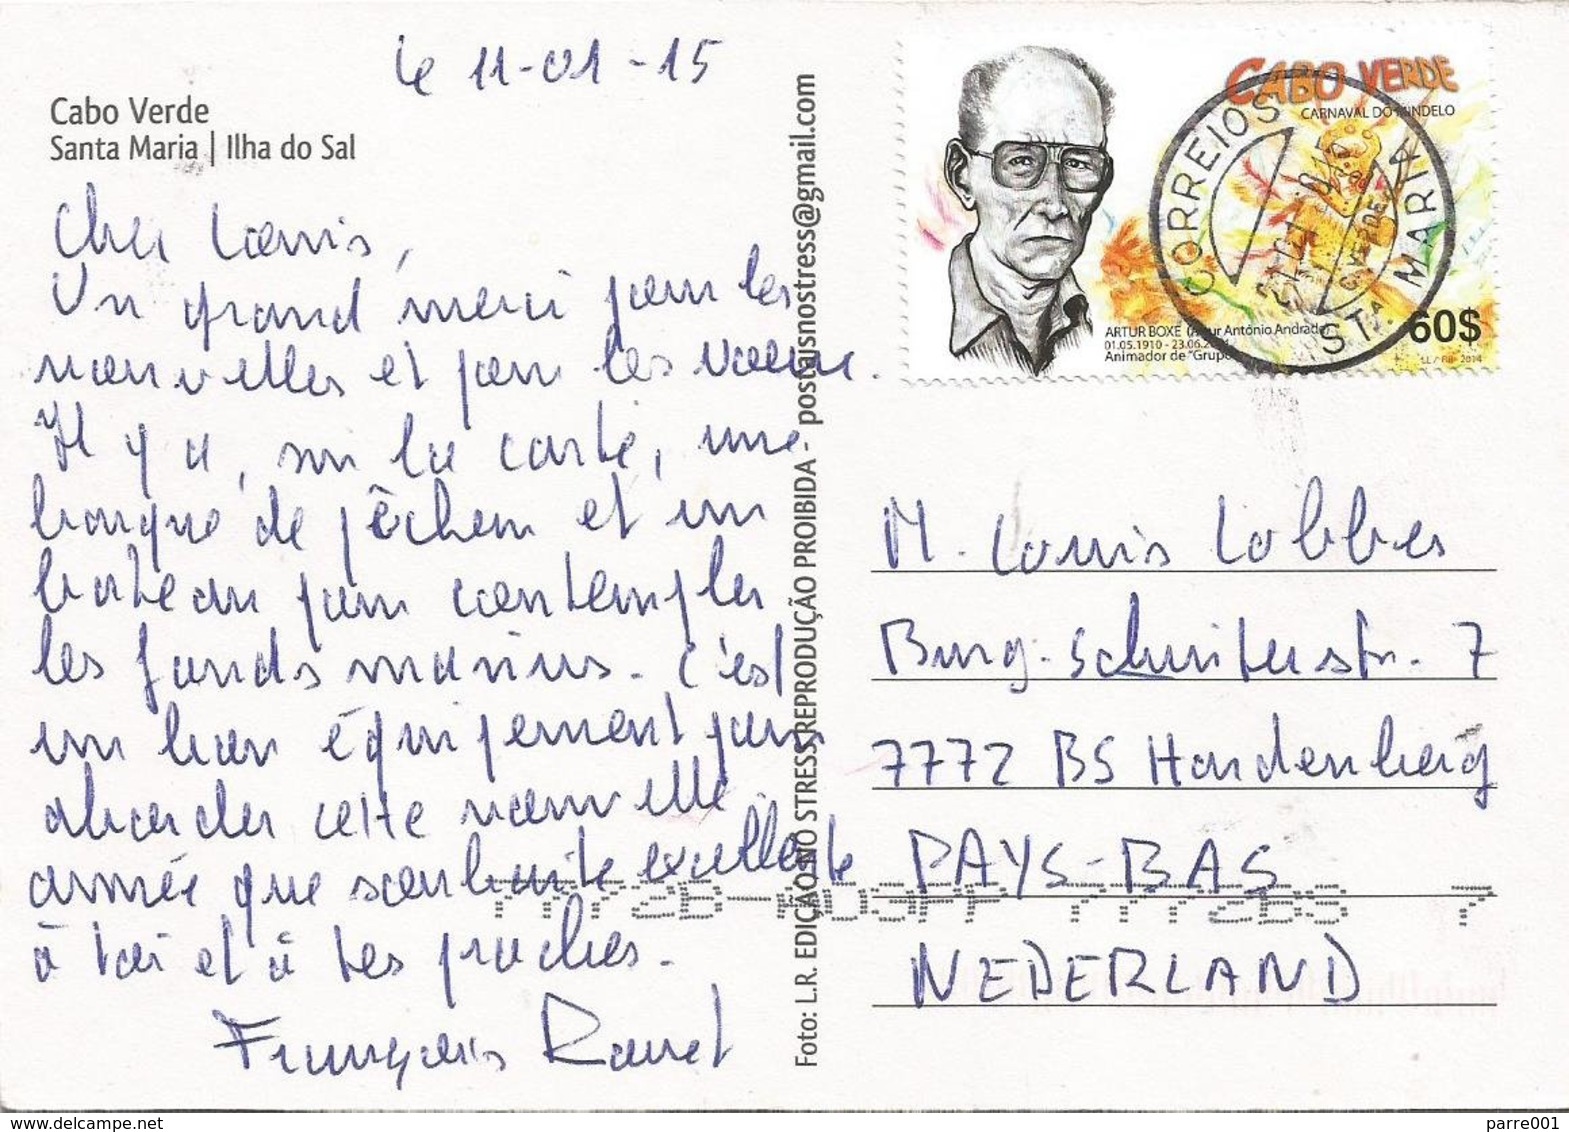 le 11-01-15
Cabo Verde
Santa Maria | Ilha do Sal
Cher Louis,
Un grand merci pour les
nouvelles et pour les voeux.
Il y a, sur la carte, une
barque de pêcheur et un
bateau pour contempler
les fonds marins. C'est
un bon équipement pour
aborder cette nouvelle
année que souhaite excellente
à toi et à tes proches.
François Ravet
Foto: L.R. EDIÇÃO NO STRESS REPRODUÇÃO PROIBIDA - postaisnostress@gmail.com
CABO VERDE
CARNAVAL DO MINDELO
CORREIOS
STA. MARIA
C. VERDE
ARTUR BOXE (Artur António Andrade)
01.05.1910 - 23.06.
Animador de "Grupo
60$
2014
M. Louis Lobbes
Burg. Schuitestr. 7
7772 BS Hardenberg
PAYS-BAS
7772BS 7
NEDERLAND
parre001